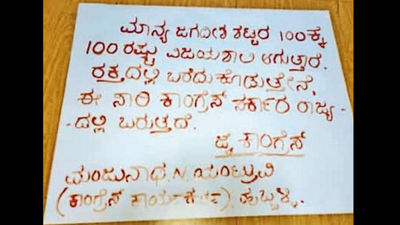 ಮಾನ್ಯ ಜಗದೀಶ ಶೆಟ್ಟರ 100ಕ್ಕೆ
100 ರಷ್ಟು ವಿಜಯಶಾಲಿ ಆಗುತ್ತಾರೆ.
ರಕ್ತದಲ್ಲಿ ಬರೆದುಕೊಡುತ್ತೇನೆ,
ಈ ಸಾರಿ ಕಾಂಗ್ರೆಸ್ ಸರ್ಕಾರ ರಾಜ್ಯ-
-ದಲ್ಲಿ ಬರುತ್ತದೆ.
ಜೈ ಕಾಂಗ್ರೆಸ್
ಮಂಜುನಾಥ. N. ಯಂಟ್ರುವಿ
(ಕಾಂಗ್ರೆಸ್ ಕಾರ್ಯಕರ್ತ) ಹುಬ್ಬಳ್ಳಿ.